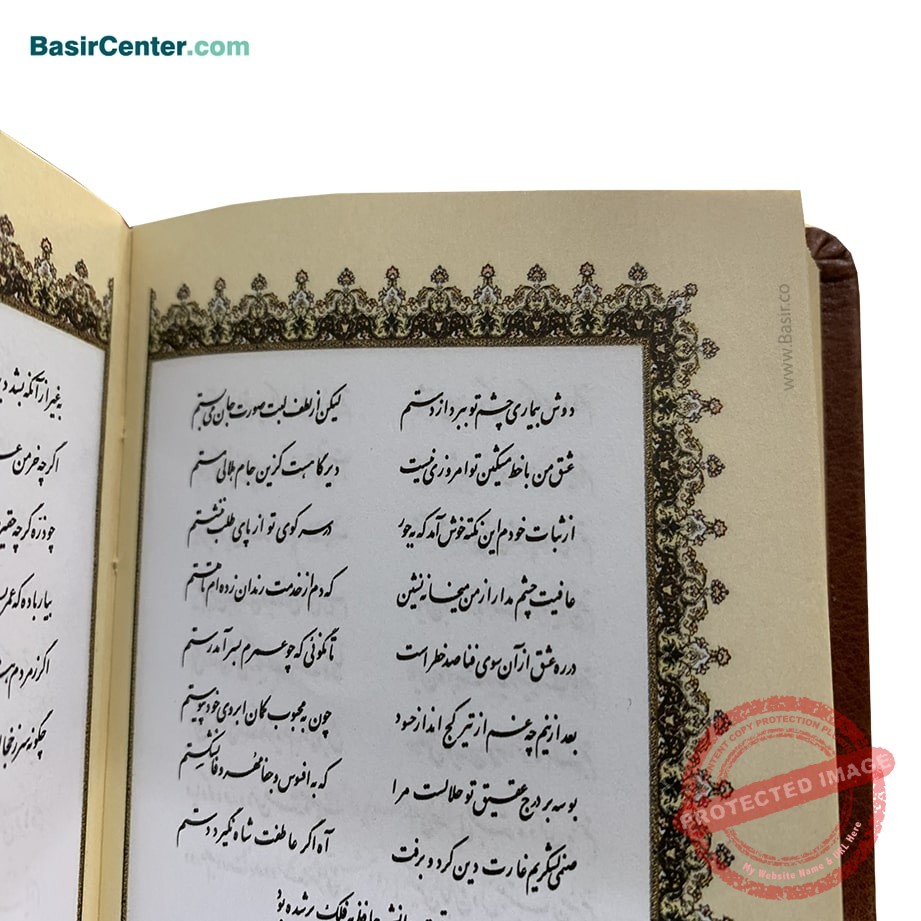 BasirCenter.com
www.Basir.co
دوش بیماری چشم تو ببرد از دستم لیکن از لطف لبت صورت جان می‌بستم
عشق من با خط مشکین تو امروزی نیست دیرگاهست کزین جام هلالی مستم
از ثبات خودم این نکته خوش آمد که به جور در سر کوی تو از پای طلب ننشستم
عافیت چشم مدار از من میخانه نشین که دم از خدمت رندان زده‌ام تا هستم
در ره عشق از آن سوی فنا صد خطر است تا نگوئی که چو عمرم بسر آمد رستم
بعد ازینم چه غم از تیر کج انداز حسود چون به محبوب کمان ابروی خود پیوستم
بوسه بر درج عقیق تو حلالست مرا که به افسوس و جفا مهر وفا نشکستم
صنمی لشکریم غارت دین کرد و برفت آه اگر عاطفت شاه نگیرد دستم
حافظ به فلک بر شده بود
به غیر از آنکه بشد
اگر چه خرمن
چو ذره گرچه
بیار باده که
اگر ز مردم
چگونه سر ز
PROTECTED IMAGE
My Website Name & URL Here